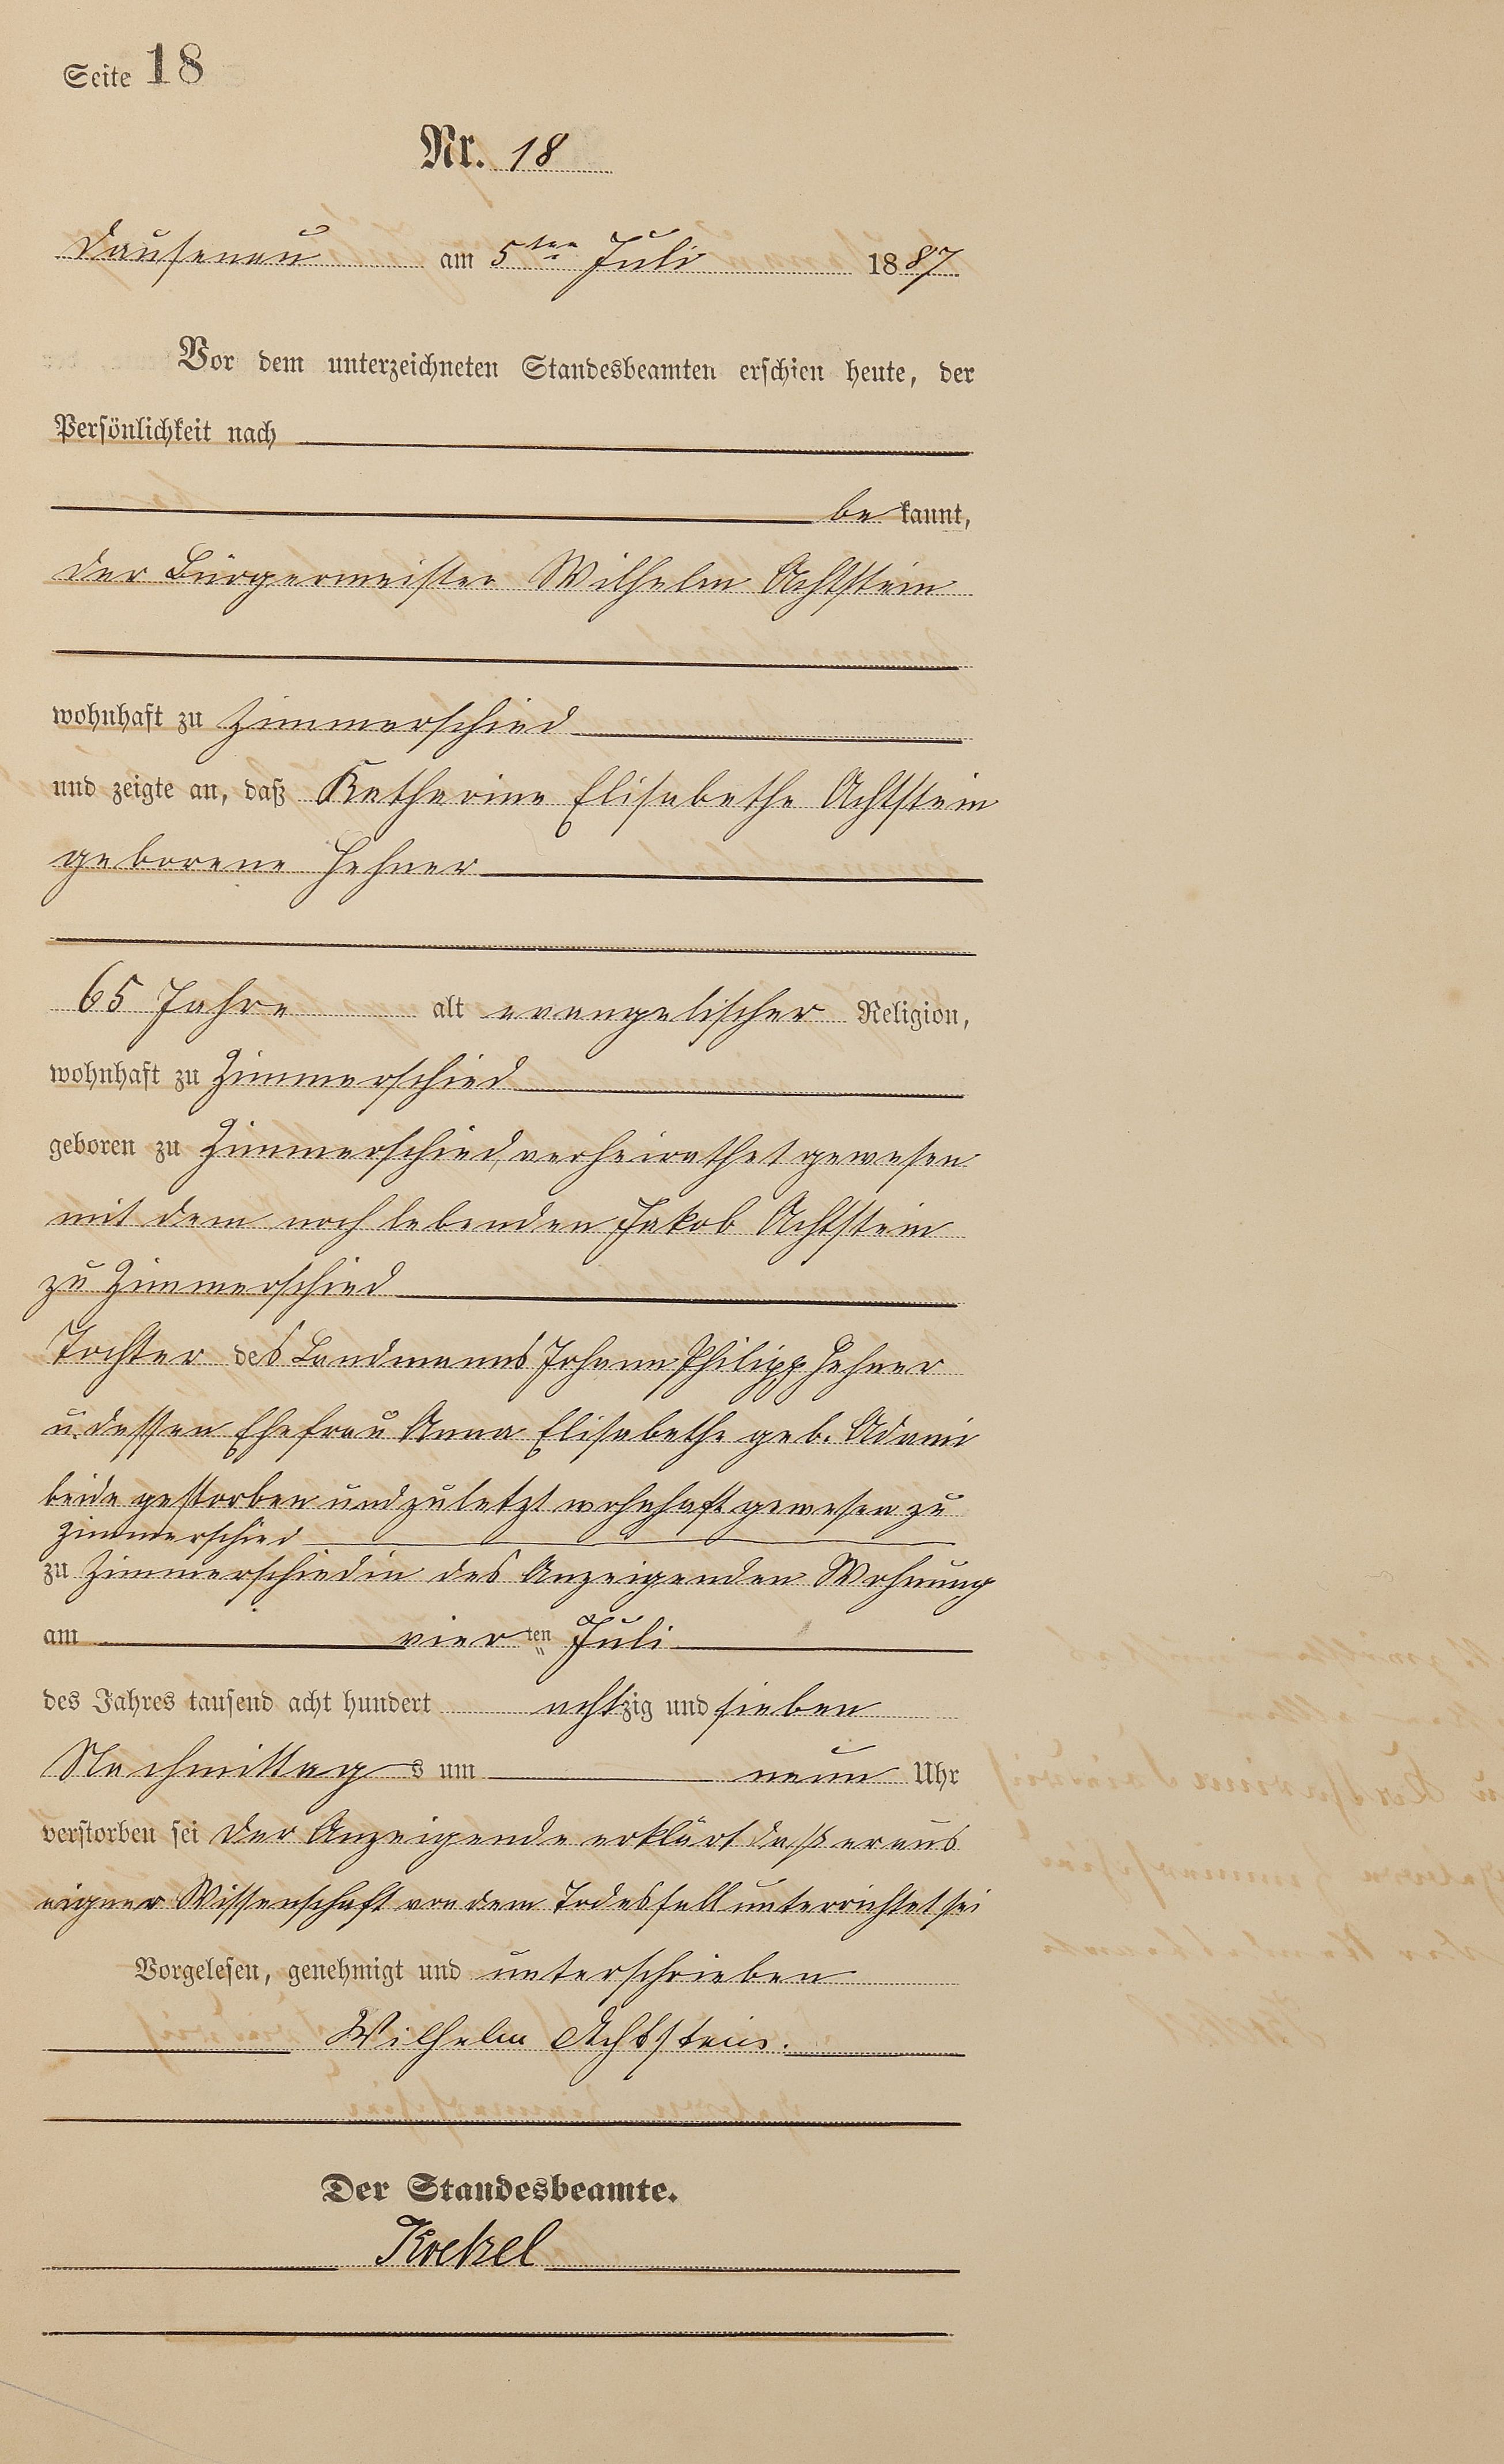 Seite 18
Nr. 18
Dausenau am 5ten Juli 1887
Vor dem unterzeichneten Standesbeamten erschien heute, der
Persönlichkeit nach
bekannt,
der Bürgermeister Wilhelm Achtstein
wohnhaft zu Zimmerschied
und zeigte an, daß Katharine Elisabethe Achtstein
geborene Hehner
65 Jahre alt evangelischer Religion,
wohnhaft zu Zimmerschied
geboren zu Zimmerschied, verheirathet gewesen
mit dem noch lebenden Jakob Achtstein
zu Zimmerschied
Tochter des Landmanns Johann Philipp Hehner
u. dessen Ehefrau Anna Elisabethe geb. Adami
beide gestorben und zuletzt wohnhaft gewesen zu
Zimmerschied
zu Zimmerschied in des Anzeigenden Wohnung
am vierten Juli
des Jahres tausend acht hundert achtzig und sieben
Nachmittags um neun Uhr
verstorben sei der Anzeigende erklärt daß er aus
eigner Wissenschaft von dem Todesfall unterrichtet sei
Vorgelesen, genehmigt und unterschrieben
Wilhelm Achtstein.
Der Standesbeamte.